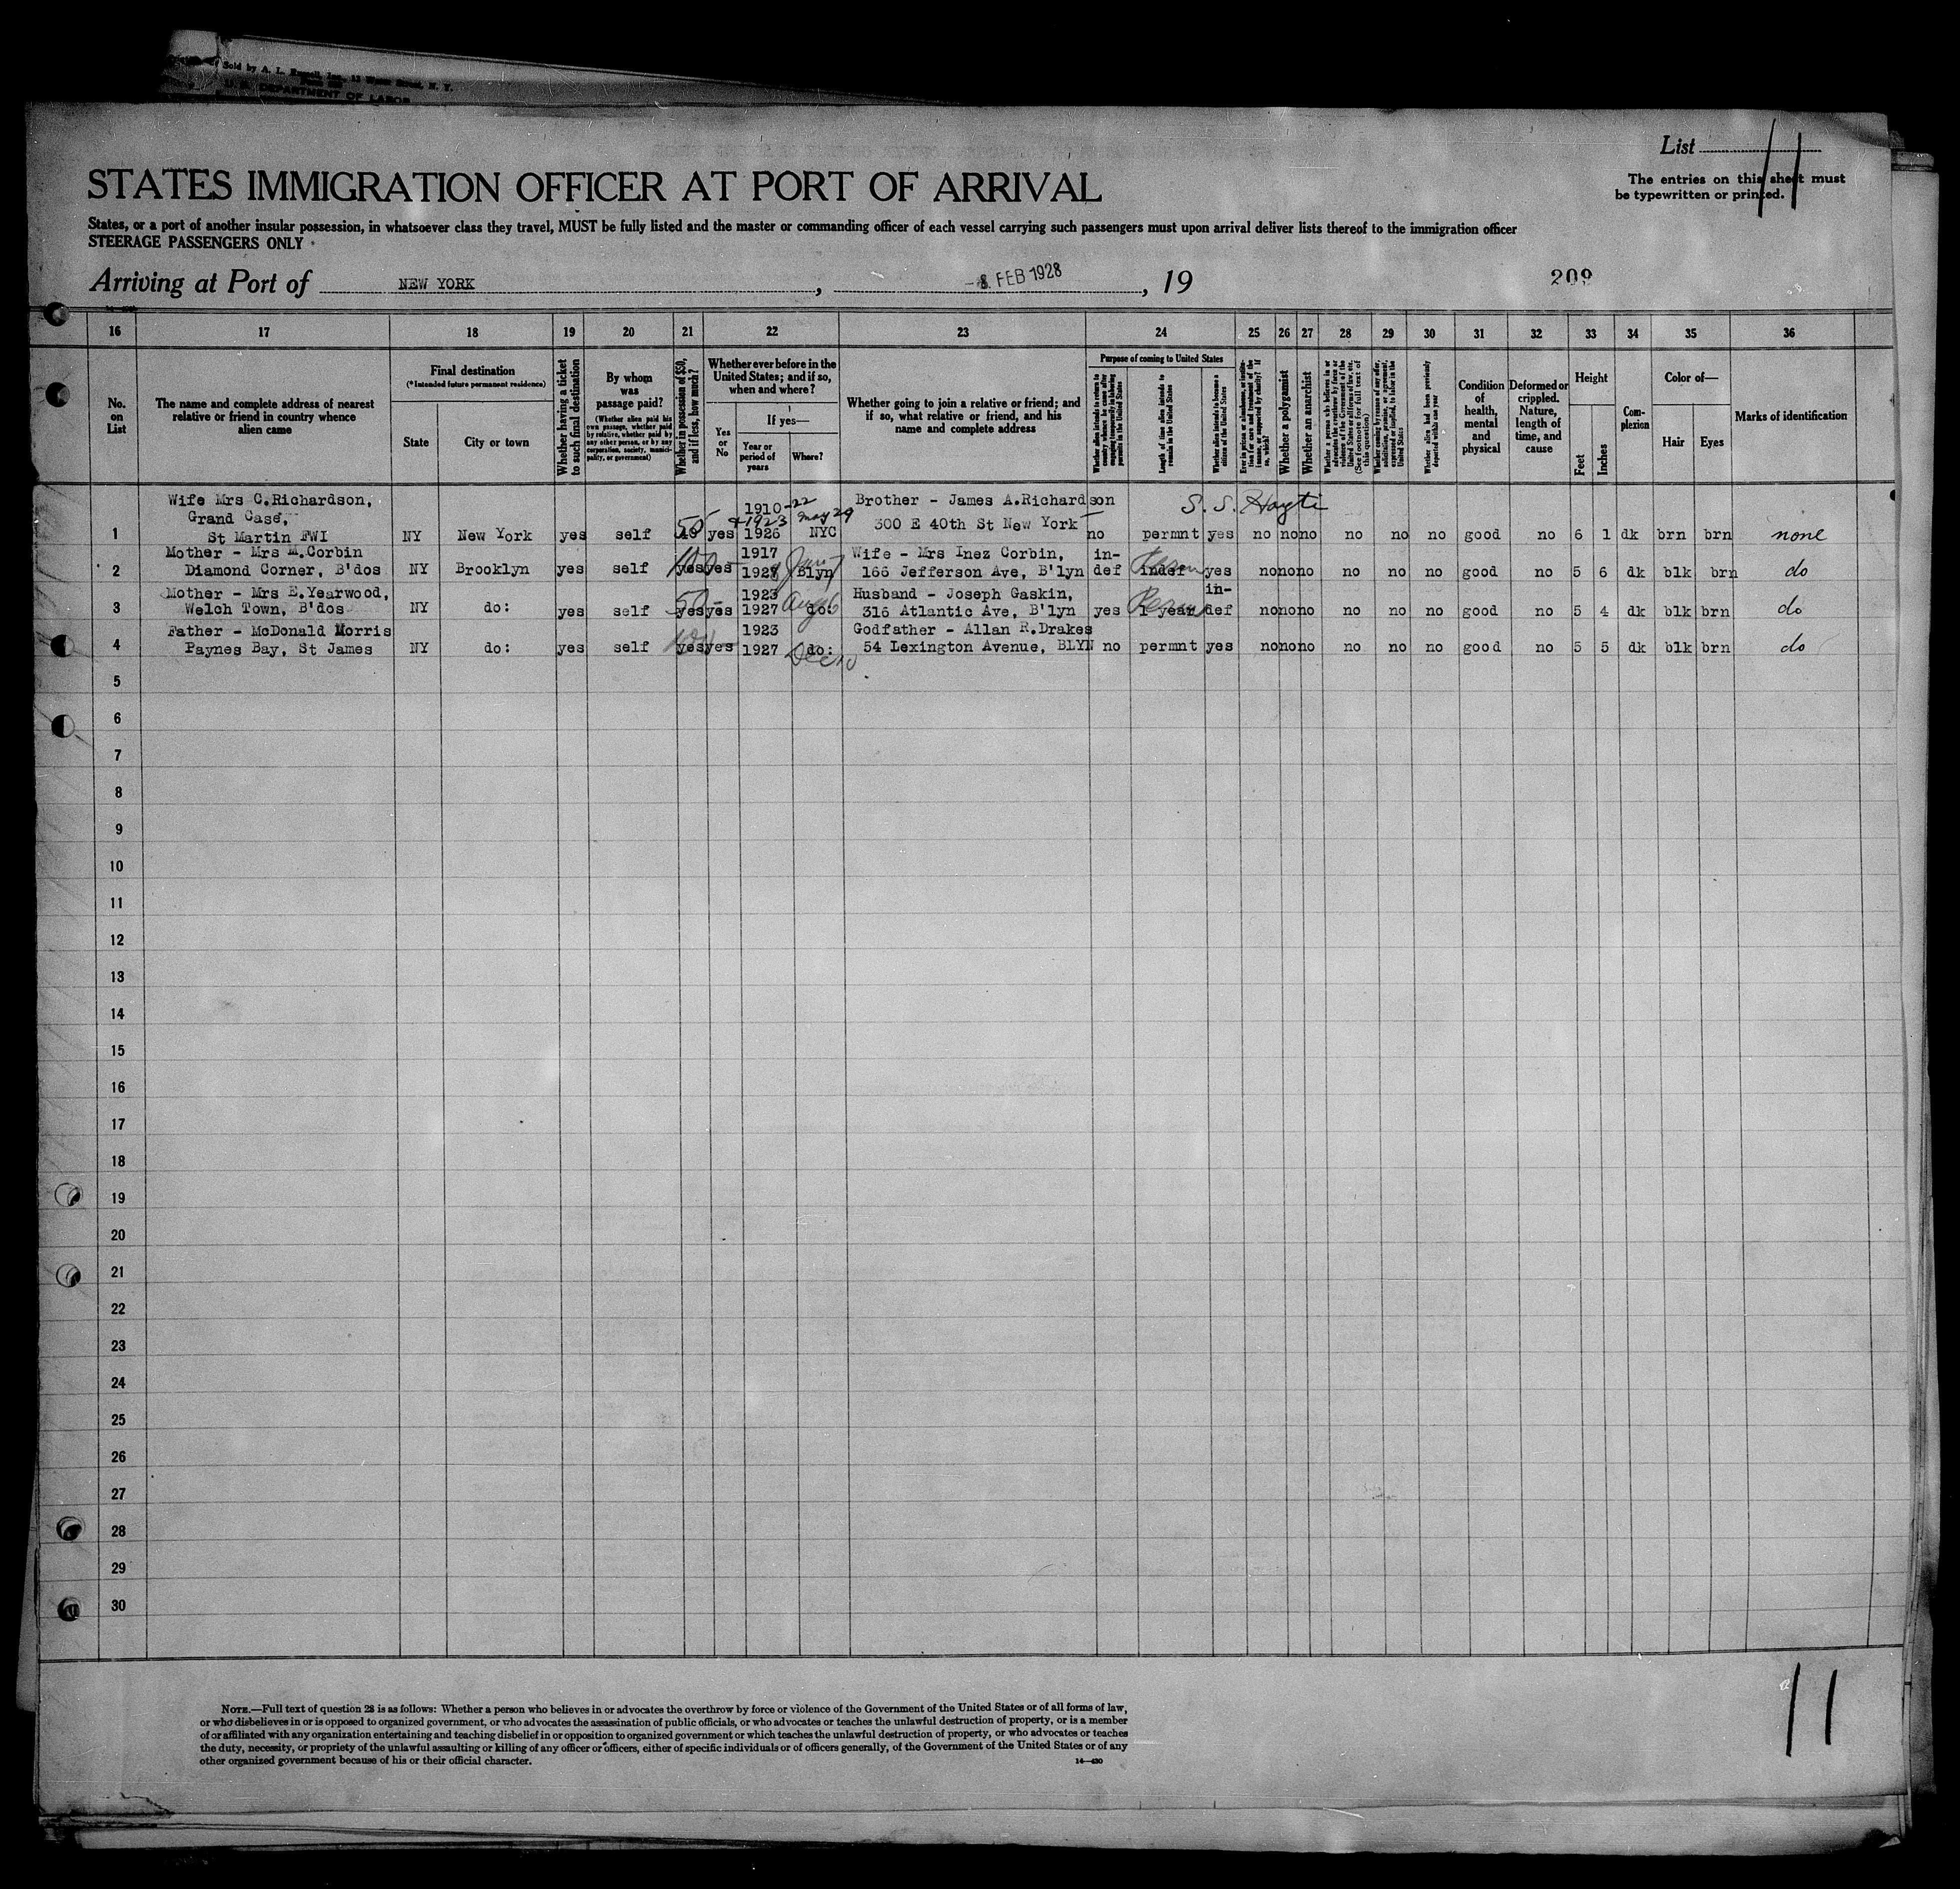 Sold by A. L. Russell, Inc., 13 Water Street, N. Y.
U. S. DEPARTMENT OF LABOR
List 11
The entries on this sheet must
be typewritten or printed.
STATES IMMIGRATION OFFICER AT PORT OF ARRIVAL
States, or a port of another insular possession, in whatsoever class they travel, MUST be fully listed and the master or commanding officer of each vessel carrying such passengers must upon arrival deliver lists thereof to the immigration officer
STEERAGE PASSENGERS ONLY
Arriving at Port of NEW YORK, FEB 1928, 19
209
16 17 18 19 20 21 22 23 24 25 26 27 28 29 30 31 32 33 34 35 36
No. on List
The name and complete address of nearest relative or friend in country whence alien came
Final destination
(*Intended future permanent residence)
State
City or town
Whether having a ticket to such final destination
By whom was passage paid?
(Whether alien paid his own passage, whether paid by relative, whether paid by any other person, or by any corporation, society, municipality, or government)
Whether in possession of $50, and if less, how much?
Whether ever before in the United States; and if so, when and where?
Yes or No
If yes—
Year or period of years
Where?
Whether going to join a relative or friend; and if so, what relative or friend, and his name and complete address
Purpose of coming to United States
Length of time alien intends to remain in the United States
Whether alien intends to become a citizen of the United States
Whether a polygamist
Whether an anarchist
(See footnote for full text of this question)
Condition of health, mental and physical
Deformed or crippled. Nature, length of time, and cause
Height
Feet
Inches
Complexion
Color of—
Hair
Eyes
Marks of identification
Wife Mrs C.Richardson, 1910-22 Brother - James A.Richardson S.S. Hayti
Grand Case, +1923 may 29 300 E 40th St New York
1 St Martin FWI NY New York yes self 50 yes 1926 NYC no permnt yes no no no no no no good no 6 1 dk brn brn none
Mother - Mrs M.Corbin 1917 Wife - Mrs Inez Corbin, in-
2 Diamond Corner, B'dos NY Brooklyn yes self yes yes 1927 Blyn 166 Jefferson Ave, B'lyn def indef yes no no no no no no good no 5 6 dk blk brn do
Mother - Mrs E.Yearwood, 1923 Aug 6 Husband - Joseph Gaskin, in-
3 Welch Town, B'dos NY do: yes self 50 yes yes 1927 do: 316 Atlantic Ave, B'lyn yes 1 year def no no no no no no good no 5 4 dk blk brn do
Father - McDonald Morris 1923 Godfather - Allan R.Drakes
4 Paynes Bay, St James NY do: yes self yes yes 1927 do: Dec 10 54 Lexington Avenue, BLYN no permnt yes no no no no no no good no 5 5 dk blk brn do
5
6
7
8
9
10
11
12
13
14
15
16
17
18
19
20
21
22
23
24
25
26
27
28
29
30
11
NOTE.—Full text of question 28 is as follows: Whether a person who believes in or advocates the overthrow by force or violence of the Government of the United States or of all forms of law,
or who disbelieves in or is opposed to organized government, or who advocates the assassination of public officials, or who advocates or teaches the unlawful destruction of property, or is a member
of or affiliated with any organization entertaining and teaching disbelief in or opposition to organized government or which teaches the unlawful destruction of property, or who advocates or teaches
the duty, necessity, or propriety of the unlawful assaulting or killing of any officer or officers, either of specific individuals or of officers generally, of the Government of the United States or of any
other organized government because of his or their official character.
14—430